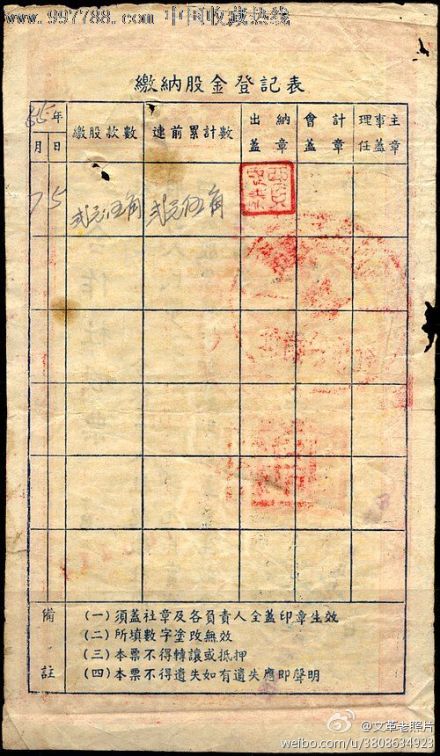 www.997788.com 中国收藏热线
繳納股金登記表
年
月 日
繳股款數
連前累計數
出納蓋章
會計蓋章
理事主任蓋章
75 貳元伍角 貳元伍角
備註
(一) 須蓋社章及各負責人全蓋印章生效
(二) 所填數字塗改無效
(三) 本票不得轉讓或抵押
(四) 本票不得遺失如有遺失應即聲明
@文革老照片
weibo.com/u/3808634923